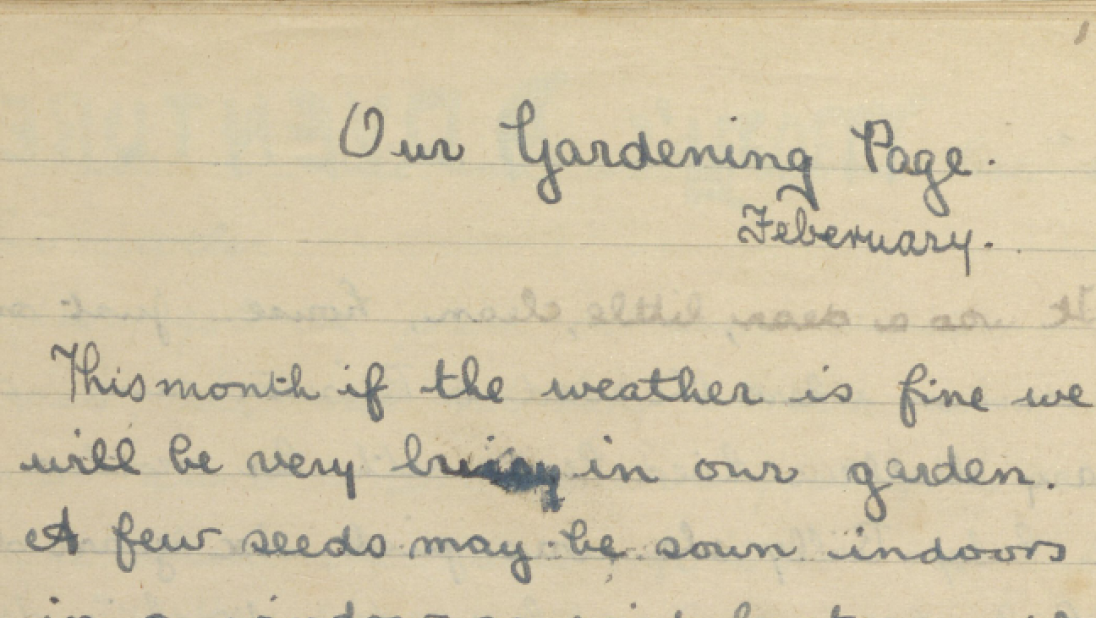 Our Gardening Page.
Feberuary.
This month if the weather is fine we
will be very in our garden.
A few seeds may be sown indoors